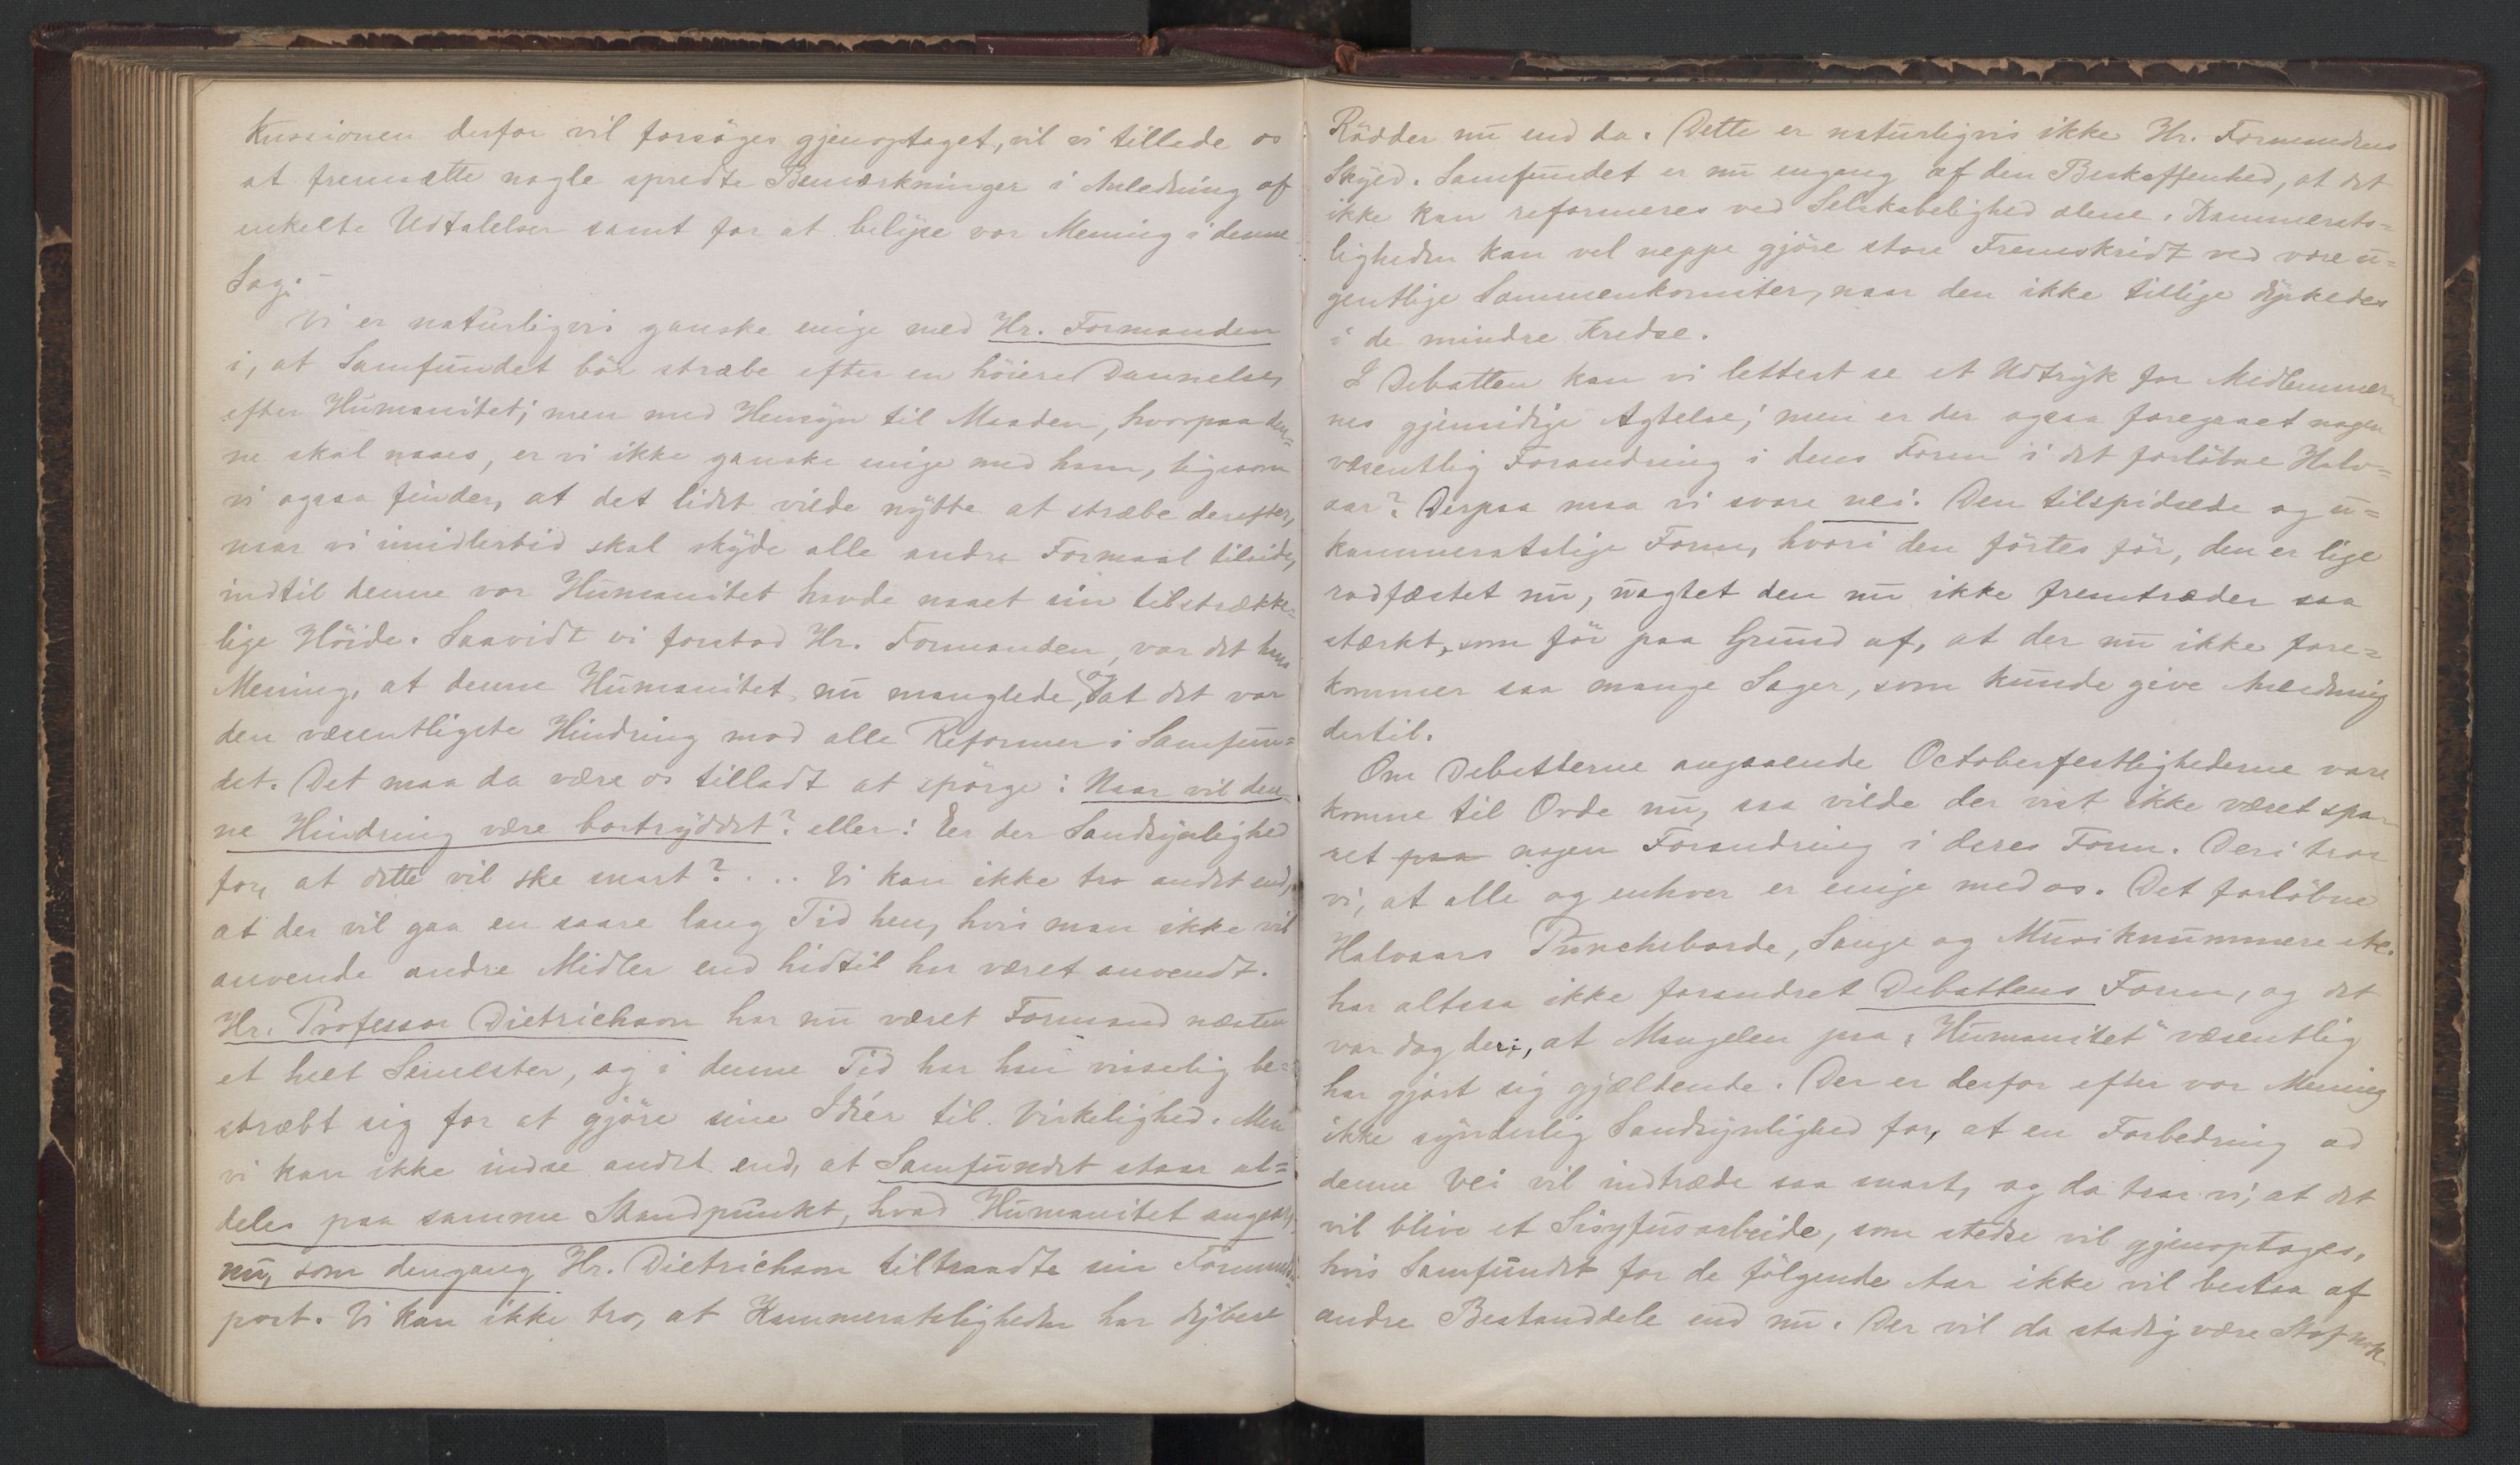 kussionen derfor vil forsöges gjenoptaget, vil vi tillade os
at fremsætte nogle spredte Bemærkninger i Anledning af
enkelte Udtalelser samt for at belyse vor Mening i denne
Sag. –
Vi er naturligvis ganske enige med Hr. Formanden
i, at Samfundet bör stræbe efter en höiere Dannelse,
efter Humanitet; men med Hensyn til Maaden, hvorpaa den=
ne skal naaes, er vi ikke ganske enige med ham, ligesom
vi ogsaa finder, at det lidet vilde nytte at stræbe derefter,
naar vi imidlertid skal skyde alle andre Formaal tilside,
indtil denne vor Humanitet havde naaet sin tilstrække=
lige Höide. Saavidt vi forstod Hr. Formanden, var det hans
Mening, at denne Humanitet nu manglede, og at det var
den væsentligste Hindring mod alle Reformer i Samfun=
det. Det maa da være os tilladt at spörge: Naar vil den=
ne Hindring være bortryddet? eller: Eer der Sandsynlighed
for, at dette vil ske snart? . . . Vi kan ikke tro andet end,
at der vil gaa en saare lang Tid hen, hvis man ikke vil
anvende andre Midler end hidtil har været anvendt.
Hr. Professor Dietrichson har nu været Formand næsten
et helt Semester, og i denne Tid har han visselig be=
stræbt sig for at gjöre sine Idéer til Virkelighed. Men
vi kan ikke indse andet end, at Samfundet staar al=
deles paa samme Standpunkt, hvad Humanitet angaar,
nu, som dengang Hr. Dietrichson tiltraadte sin Formands=
post. Vi kan ikke tro, at Kammeratsligheden har dybere
Rödder nu end da. Dette er naturligvis ikke Hr. Formandens
Skyld. Samfundet er nu engang af den Beskaffenhed, at det
ikke kan reformeres ved Selskabelighed alene. Kammerats=
ligheden kan vel neppe gjöre store Fremskridt ved vore u=
gentlige Sammenkomster, naar den ikke tillige dyrkedes
i de mindre Kredse.
I Debatten kan vi lettest se et Udtryk for Medlemmer=
nes gjensidige Agtelse; men er der ogsaa foregaaet nogen
væsentlig Forandring i dens Form i det forlöbne Halv=
aar? Derpaa maa vi svare nei. Den tilspidsede og u=
kammeratslige Form, hvori den förtes för, den er lige
rodfæstet nu, uagtet den nu ikke fremtræder saa
stærkt, som för paa Grund af, at der nu ikke fore=
kommer saa mange Sager, som kunde give Anledning
dertil.
Om Debatterne angaaende Octoberfestlighederne vare
komne til Orde nu, saa vilde der vist ikke været spa=
ret paa nogen Forandring i deres Form. Deri tror
vi, at alle og enhver er enige med os. Det forlöbne
Halvaars Puncheborde, Sange og Musiknummere etc.
har altsaa ikke forandret Debattens Form, og det
var dog deri, at Mangelen paa "Humanitet" væsentlig
har gjort sig gjældende. Der er derfor efter vor Mening
ikke synderlig Sandsynlighed for, at en Forbedring ad
denne Vei vil indtræde saa snart, og da tror vi, at det
vil blive et Sisyfusarbeide, som stedse vil gjenoptages,
hvis Samfundet for de fölgende Aar ikke vil bestaa af
andre Bestanddele end nu. Der vil da stadig være Stof nok